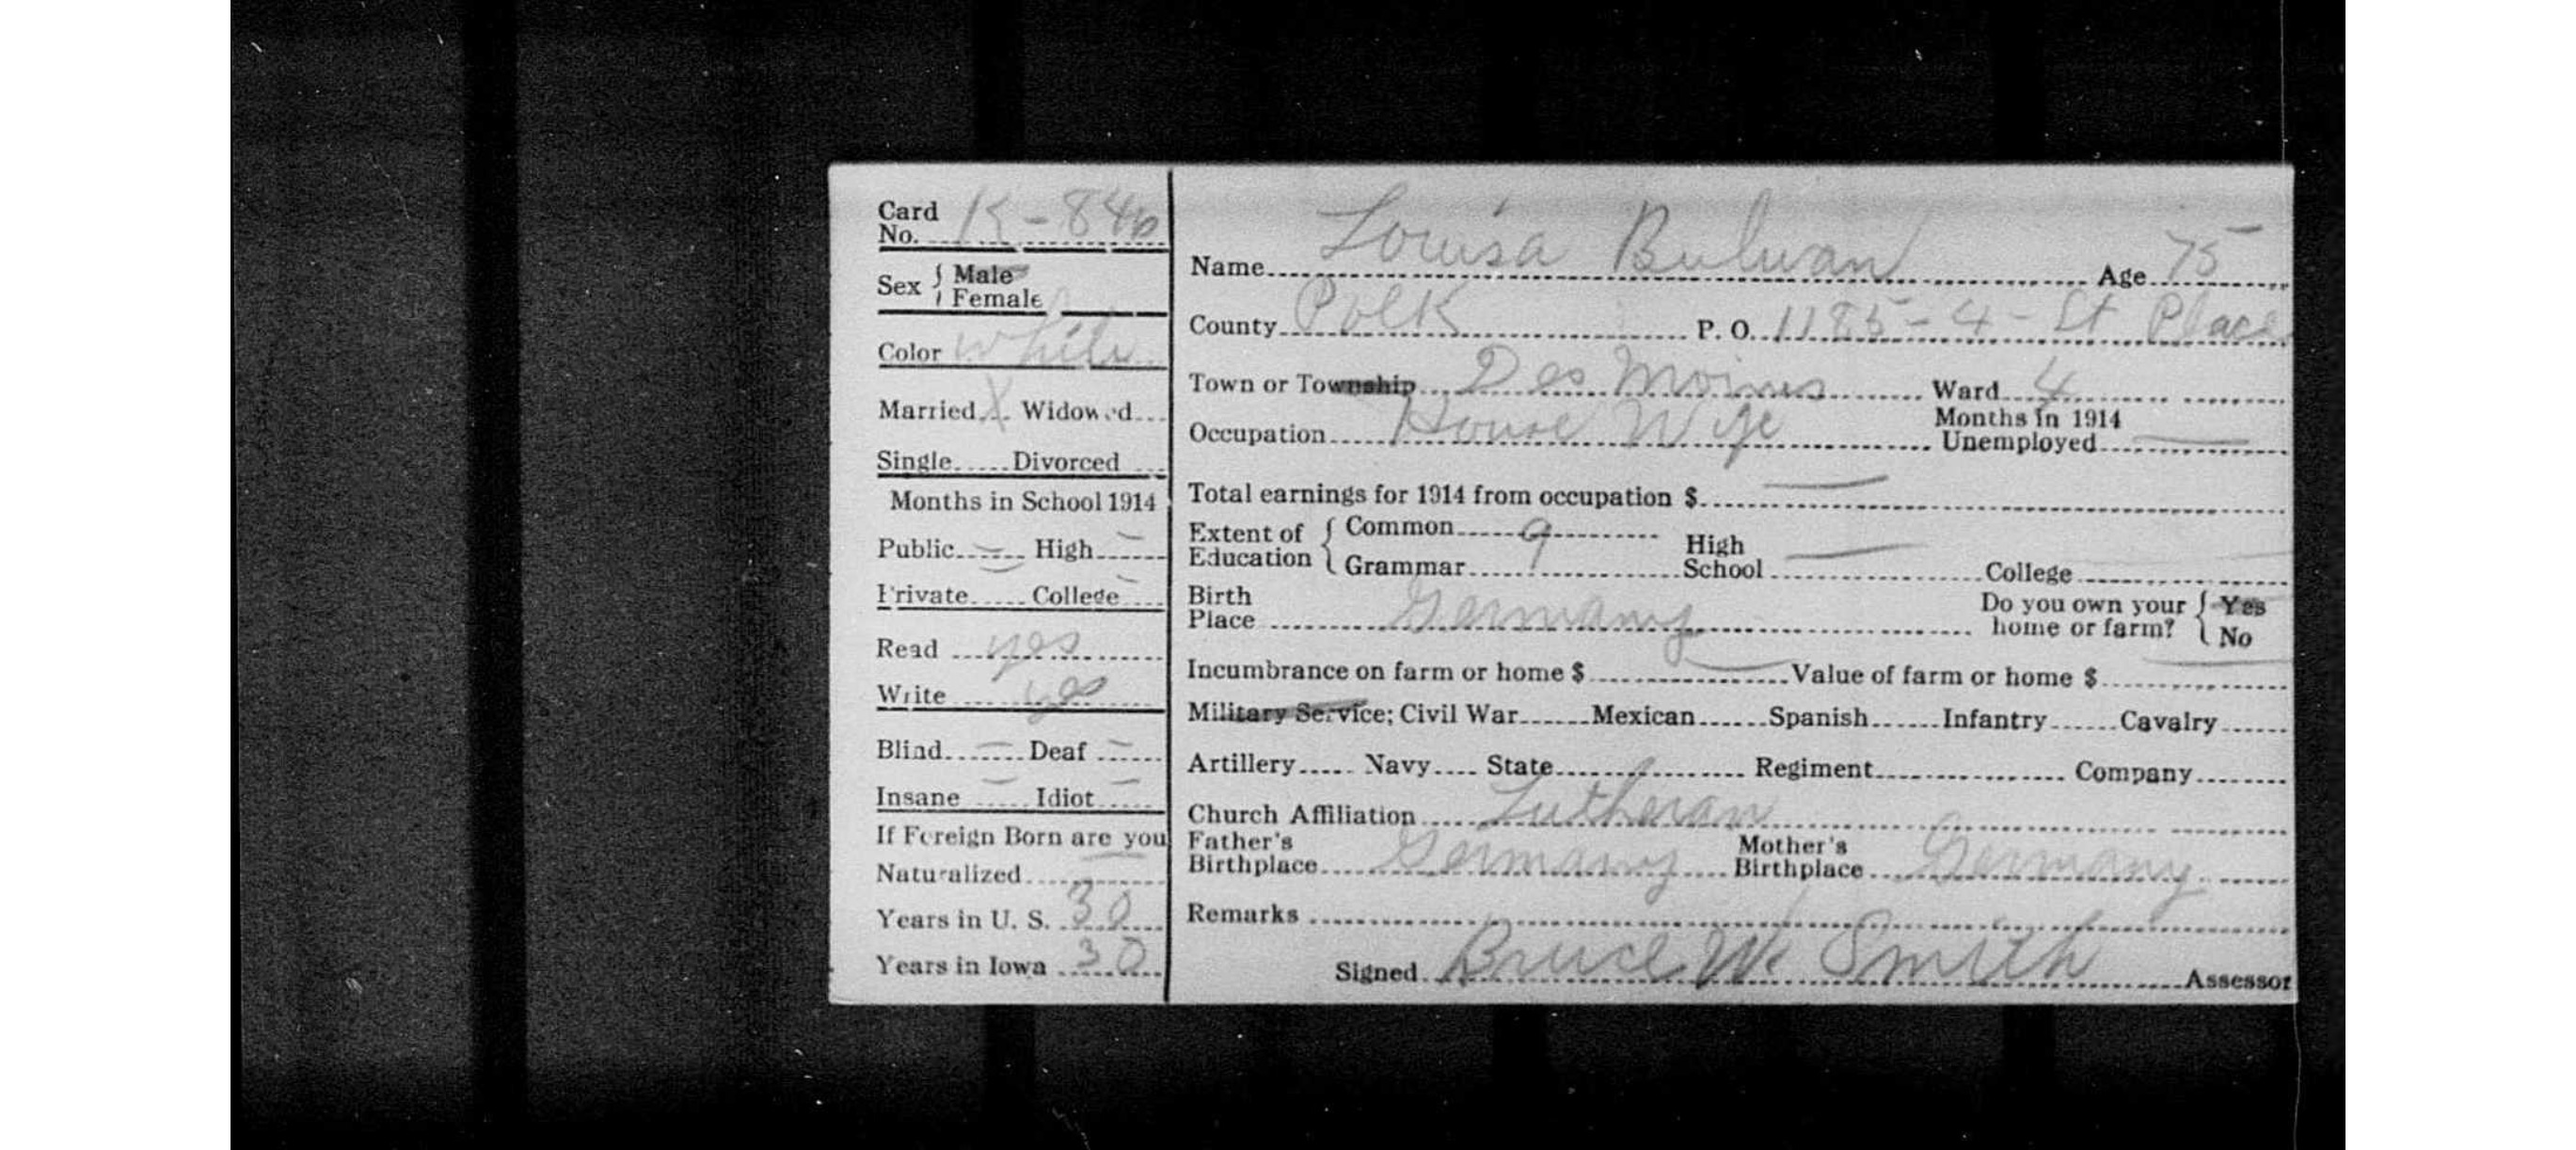 Card
No. K-846
Sex { Male
Female
Color white
Married X Widowed
Single Divorced
Months in School 1914
Public — High —
Private — College —
Read yes
Write yes
Blind — Deaf —
Insane — Idiot —
If Foreign Born are you
Naturalized —
Years in U. S. 30
Years in Iowa 30
Name Louisa Age 75
County Polk P. O. 1185-4-St Place
Town or Township Des Moines Ward 4
Occupation House Wife Months in 1914 Unemployed —
Total earnings for 1914 from occupation $ —
Extent of Education { Common 9
Grammar High School — College
Birth Place Germany Do you own your home or farm? { Yes
No
Incumbrance on farm or home $ — Value of farm or home $ —
Military Service; Civil War Mexican Spanish Infantry Cavalry
Artillery Navy State Regiment Company
Church Affiliation Lutheran
Father's Birthplace Germany Mother's Birthplace Germany
Remarks
Signed Bruce W. Smith Assessor